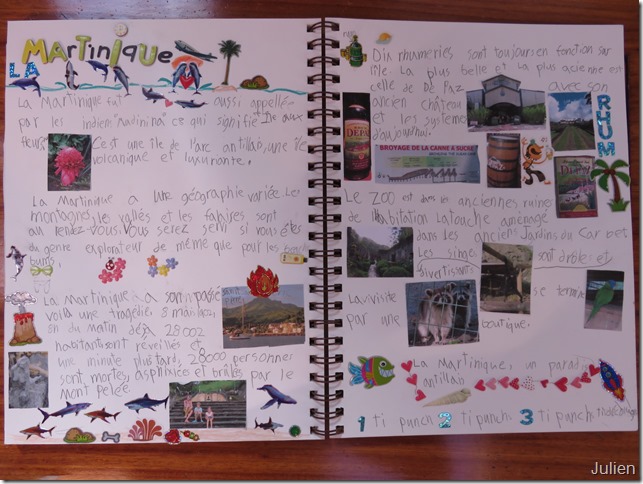 LA MARTINIQUE
La Martinique fut aussi appellée
par les indiens "Madinina" ce qui signifie île aux
fleurs
C'est une île de l'arc antillais, une île
volcanique et luxuriante.
La Martinique a une géographie variée. Les
montagnes, le vallés et les falaises sont
au rendez-vous. Vous serez servi si vous êtes
du genre explorateur de même que pour les beach
bums.
La Martinique a son passé
voilà une tragédie, 8 mai 1902,
du matin déjà 28002
habitant sont réveillés et
une minute plus tard, 28000 personner
sont mortes, asphixiées et brûlés par le
Mont Pelée.
SAINT PIERRE
Dix rhumeries sont toujours en fonction sur
l'île. La plus belle et la plus acienne est
celle de De Paz avec son
ancien château
et les systèmes
d'aujourd'hui.
RHUM
DEPAZ
BROYAGE DE LA CANNE A SUCRE
Le Zoo est dans les anciennes ruines
de l'habitation Latouche aménagé
dans les ancien Jardins du Carbet
Les singes sont drôles et
divertisants
La visite se termine
par une boutique.
La Martinique, un parad
antillais
1 ti punch 2 ti punchs 3 ti punch
Julien